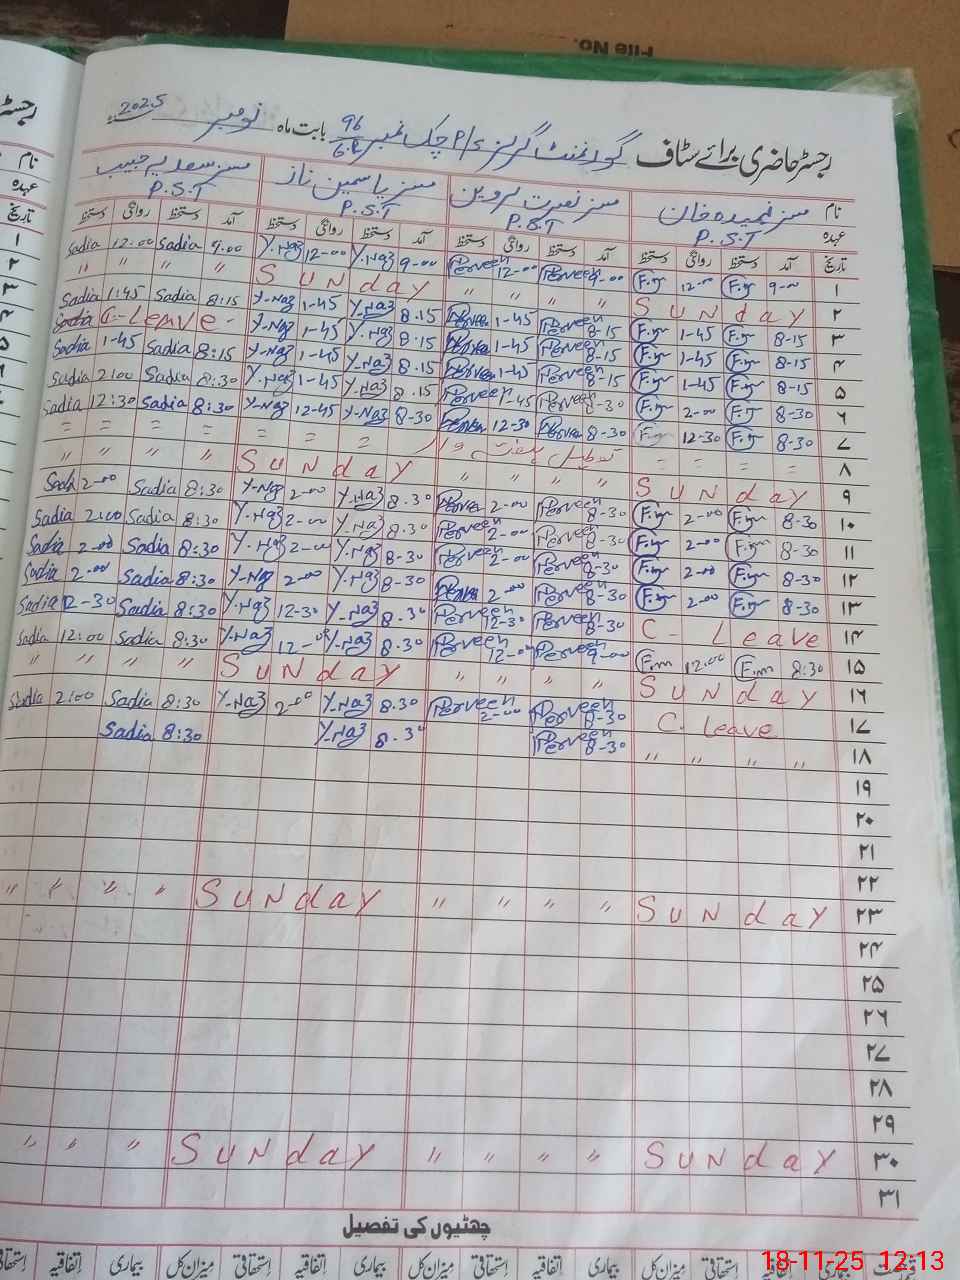 File No.
رجسٹر حاضری برائے سٹاف گورنمنٹ گرلز P/S چک نمبر 96 / 6.R بابت ماہ نومبر 2025
نام مسز فہمیدہ خان مسز نصرت پروین مسز یاسمین ناز مسز سعدیہ حبیب
عہدہ P.S.T P.S.T P.S.T P.S.T
تاریخ آمد دستخط روانگی دستخط آمد دستخط روانگی دستخط آمد دستخط روانگی دستخط آمد دستخط روانگی دستخط
Sadia 12:00 Sadia 9.00 Y.Naz 12-00 Y.Naz 9-00 Perveen 12-00 Perveen 9-00 12-00 9-00 ۱
" " " " Sunday " " " " Sunday ۲
Sadia 1:45 Sadia 8:15 Y-Naz 1-45 Y.Naz 8.15 Perveen 1-45 Perveen 8-15 1-45 8-15 ۳
Sadia C-Leave- Y-Naz 1-45 Y.Naz 8.15 Perveen 1-45 Perveen 8-15 1-45 8-15 ۴
Sadia 1-45 Sadia 8:15 Y-Naz 1-45 Y-Naz 8.15 Perveen 1-45 Perveen 8-15 1-45 8-15 ۵
Sadia 2:00 Sadia 8:30 Y.Naz 1-45 Y.Naz 8.15 Perveen 1-45 Perveen 8-30 2-00 8-30 ۶
Sadia 12:30 Sadia 8:30 Y-Naz 12-45 Y-Naz 8-30 Perveen 12-30 Perveen 8-30 12-30 8-30 ۷
= = = = = = = تعطیل ہفتہ وار = = = = ۸
" " " " Sunday " " " " Sunday ۹
Sadia 2-00 Sadia 8:30 Y-Naz 2-00 Y.Naz 8.30 Perveen 2-00 Perveen 8-30 2-00 8-30 ۱۰
Sadia 2:00 Sadia 8:30 Y.Naz 2-00 Y.Naz 8.30 Perveen 2-00 Perveen 8-30 2-00 8-30 ۱۱
Sadia 2-00 Sadia 8:30 Y.Naz 2-00 Y.Naz 8-30 Perveen 2-00 Perveen 8-30 2-00 8-30 ۱۲
Sadia 2-00 Sadia 8:30 Y-Naz 2-00 Y.Naz 8-30 Perveen 2-00 Perveen 8-30 2-00 8-30 ۱۳
Sadia 12-30 Sadia 8:30 Y.Naz 12-30 Y-Naz 8.30 Perveen 12-30 Perveen 8-30 C- Leave ۱۴
Sadia 12:00 Sadia 8:30 Y-Naz 12-00 Y-Naz 8.30 Perveen 12-00 Perveen 9-00 12:00 8:30 ۱۵
" " " " Sunday " " " " Sunday ۱۶
Sadia 2:00 Sadia 8:30 Y-Naz 2-00 Y-Naz 8.30 Perveen 2-00 Perveen 8-30 C. Leave ۱۷
Sadia 8:30 Y.Naz 8.30 Perveen 8-30 " " " " ۱۸
۱۹
۲۰
۲۱
۲۲
" " " " Sunday " " " " Sunday ۲۳
۲۴
۲۵
۲۶
۲۷
۲۸
۲۹
" " " Sunday " " " " Sunday ۳۰
۳۱
چھٹیوں کی تفصیل
بیماری اتفاقیہ استحقاقی میزان کل بیماری اتفاقیہ استحقاقی میزان کل بیماری اتفاقیہ
18-11-25 12:13